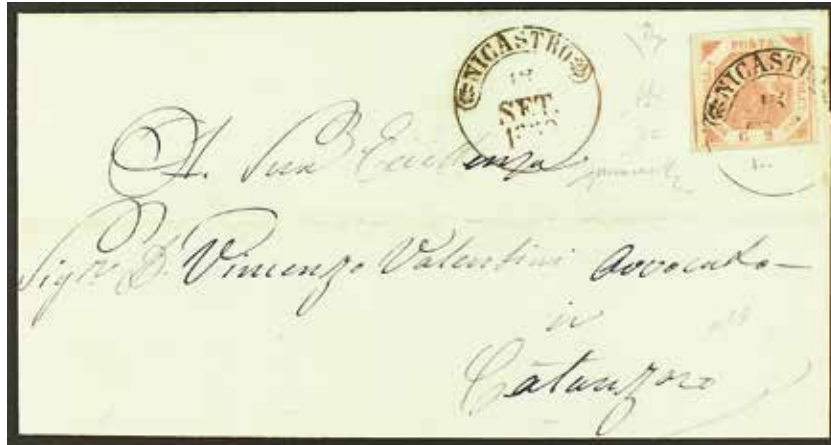 NICASTRO
SET.
POSTA
NICAST
G 2
A Sua Eccellenza
Sigr. D. Vincenzo Valentini Avvocato
in
Catanzaro